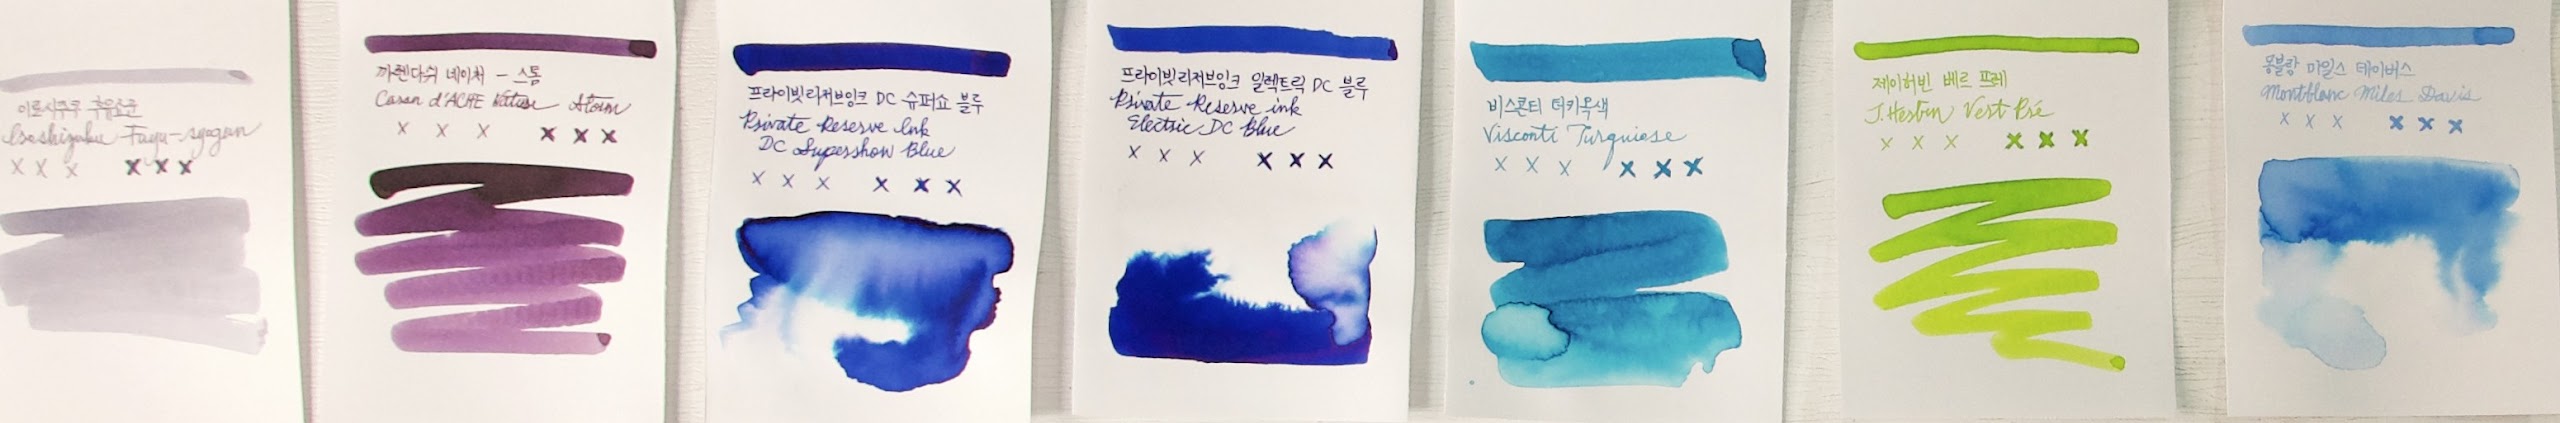 이로시주쿠 후유쇼군
Iroshizuku Fuyu-syogun
x x x x x x
까렌다쉬 네이처 - 스톰
Caran d'ACHE Storm
x x x x x x
프라이빗리저브잉크 DC 슈퍼쇼 블루
Private Reserve Ink
DC Supershow Blue
x x x x x x
프라이빗리저브잉크 일렉트릭 DC 블루
Private Reserve ink
Electric DC Blue
x x x x x x
비스콘티 터키옥색
Visconti Turquoise
x x x x x x
제이허빈 베르 프레
J. Herbin Vert Pré
x x x x x x
몽블랑 마일스 데이비스
Montblanc Miles Davis
x x x x x x